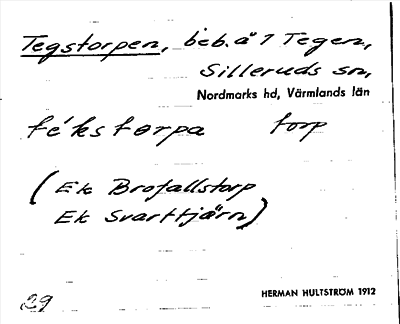 Tegstorpen, beb. å 1 Tegen,
Silleruds sn,
Nordmarks hd, Värmlands län
fékstørpa torp
(Ek Brofallstorp
Ek Svarttjärn)
29
HERMAN HULTSTRÖM 1912